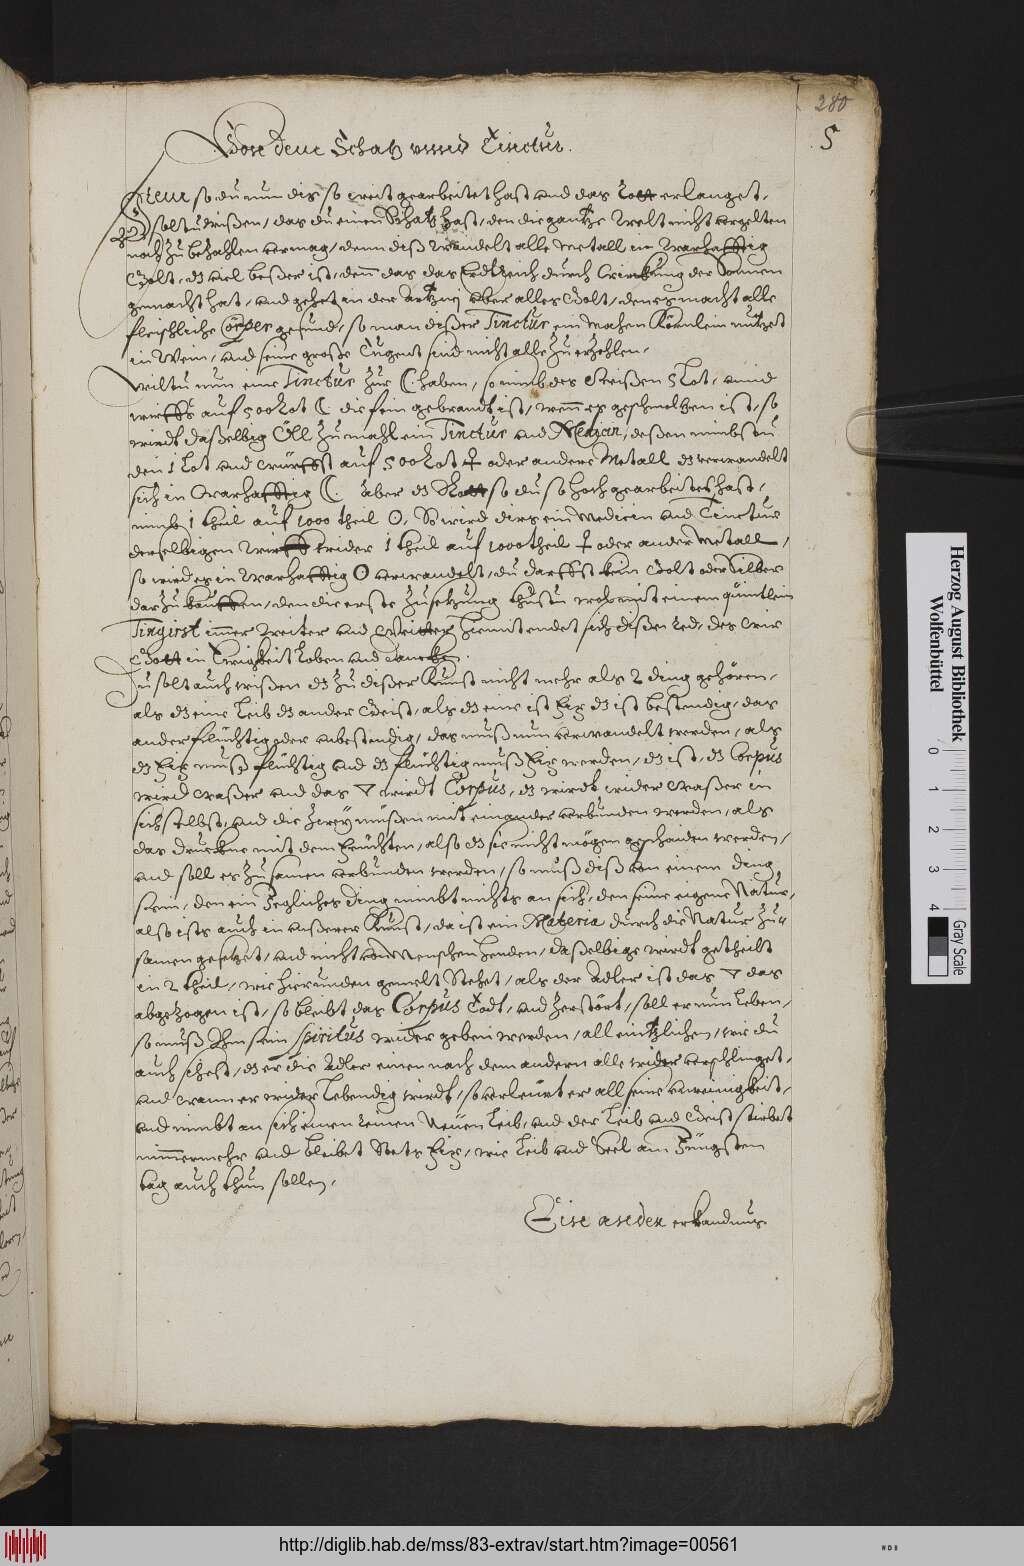 280
5
Von dem Schatz unnd Tinctur.
Item so du nun dis so weit gearbeitet hast und das Rott erlanget,
soltu wißen, das du einen Schatz hast, den die gantze Welt nicht vergelten
noch zu bezahlen vermag, denn diß wandelt alle Metall in warhafftig
Golt, dz viel beßer ist, denn das das Erdtreich durch Wirckung der Sonnen
gemacht hat, und gehet in der Artzney uber alles Golt, den es macht alle
fleischliche Cörper gesund, so man dißer Tinctur ein Mahen Körnlein nutzet
in Wein, und seine große Tugent sind nicht alle zu erzehlen.
Wiltu nun eine Tinctur zur ☾ haben, so nimb des Weißen 5 Lot, unnd
wirffs auf 500 Lot ☾ die fein gebrandt ist, wenn es geschmeltzen ist, so
wirdt daßelbig Öll zumahl ein Tinctur und Medicin, deßen nimbstu
den 1 Lot und würffst auf 500 Lot ☿ oder andere Metall dz verwandelt
sich in warhafftig ☾. Aber dz Rott so du so hoch gearbeitet hast,
nimb 1 theil auf 1000 theil ☉, So wird dirs ein Medicin und Tinctur
derselbigen wirff wider 1 theil auf 1000 theil ☿ oder ander Metall,
so wird es in warhafftig ☉ verwandelt, du darffst kein Golt oder Silber
darzu kauffen, den die erste zusetzung thustu wol mit einem quintlein
Tingirst immer weiter und weitter hiemit endet sich dißer Led, des wir
Gott in Ewigkeit Loben und dancken.
Du solt auch wißen dz zu dißer Kunst nicht mehr als 2 ding gehören,
als dz eine Leib dz ander Geist, als dz eine ist Fix dz ist bestendig, das
ander flüchtig oder unbestendig, das muß nun verwandelt werden, als
dz Fix muß flüchtig und dz flüchtig muß Fix werden, dz ist, dz Corpus
wird Waßer und das ▽ wirdt Corpus, dz wirdt wider Waßer in
sich selbst, und die zwey müßen mit einander verbunden werden, als
das druckne mit dem Feuchten, also dz sie nicht mögen gescheiden werden,
und soll es zusamen verbunden werden, so muß diß von einem ding
sein, den ein Jegliches ding nimbt nichts an sich, den seine eigene Natur,
also ists auch in unserer Kunst, da ist ein Materia durch die Natur zu-
samen gesetzt, und nicht von Menschen henden, daßelbige wirdt getheilt
in 2 theil, wie hierunden gemelt Stehet, als der Adler ist das ▽ das
abgezogen ist, so bleibt das Corpus Todt, und zerstört, soll er nun Leben,
so muß Ihm sein spiritus wider geben werden, all eintzlichen, wie du
auch sihest, dz er die Adler einen nach dem andern alle wider verschlinget,
und wann er wider Lebendig wirdt, so verleurt er all seine unreinigkeit,
und nimbt an sich einen reinen Neuen Leib, und der Leib und Geist stirbet
nimmermehr und bleibet Stets Fix, wie Leib und Seel am Jüngsten
tag auch thun sollen.
erkandnus
Herzog August Bibliothek
Wolfenbüttel
0 1 2 3 4
Gray Scale
http://diglib.hab.de/mss/83-extrav/start.htm?image=00561